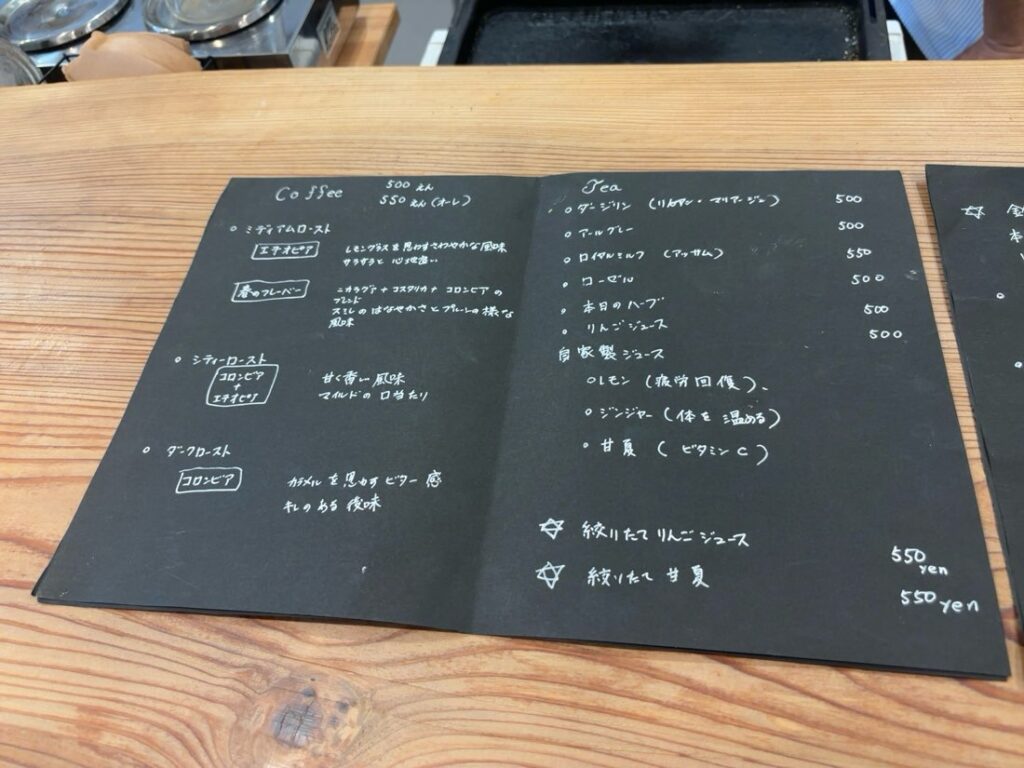 Coffee 500 えん
550 えん (オーレ)
○ ミディアムロースト
エチオピア
レモングラスを思わすさわやかな風味
サラサラと心地良い
春のフレーバー
ニカラグア + コスタリカ + コロンビアの
ブレンド
スミレのはなやかさとプルーンの様な
風味
○ シティーロースト
コロンビア
+
エチオピア
甘く香い風味
マイルドの口当たり
○ ダークロースト
コロンビア
カラメルを思わすビター感
キレのある後味
Tea
○ ダージリン ( マリアージュ) 500
○ アールグレー 500
○ ロイヤルミルク (アッサム) 550
○ ローゼル 500
○ 本日のハーブ 500
○ りんごジュース 500
自家製ジュース
○ レモン (疲労回復)、
○ ジンジャー (体を温める)
○ 甘夏 (ビタミンC)
☆ 絞りたてりんごジュース 550 yen
☆ 絞りたて甘夏 550 yen
☆